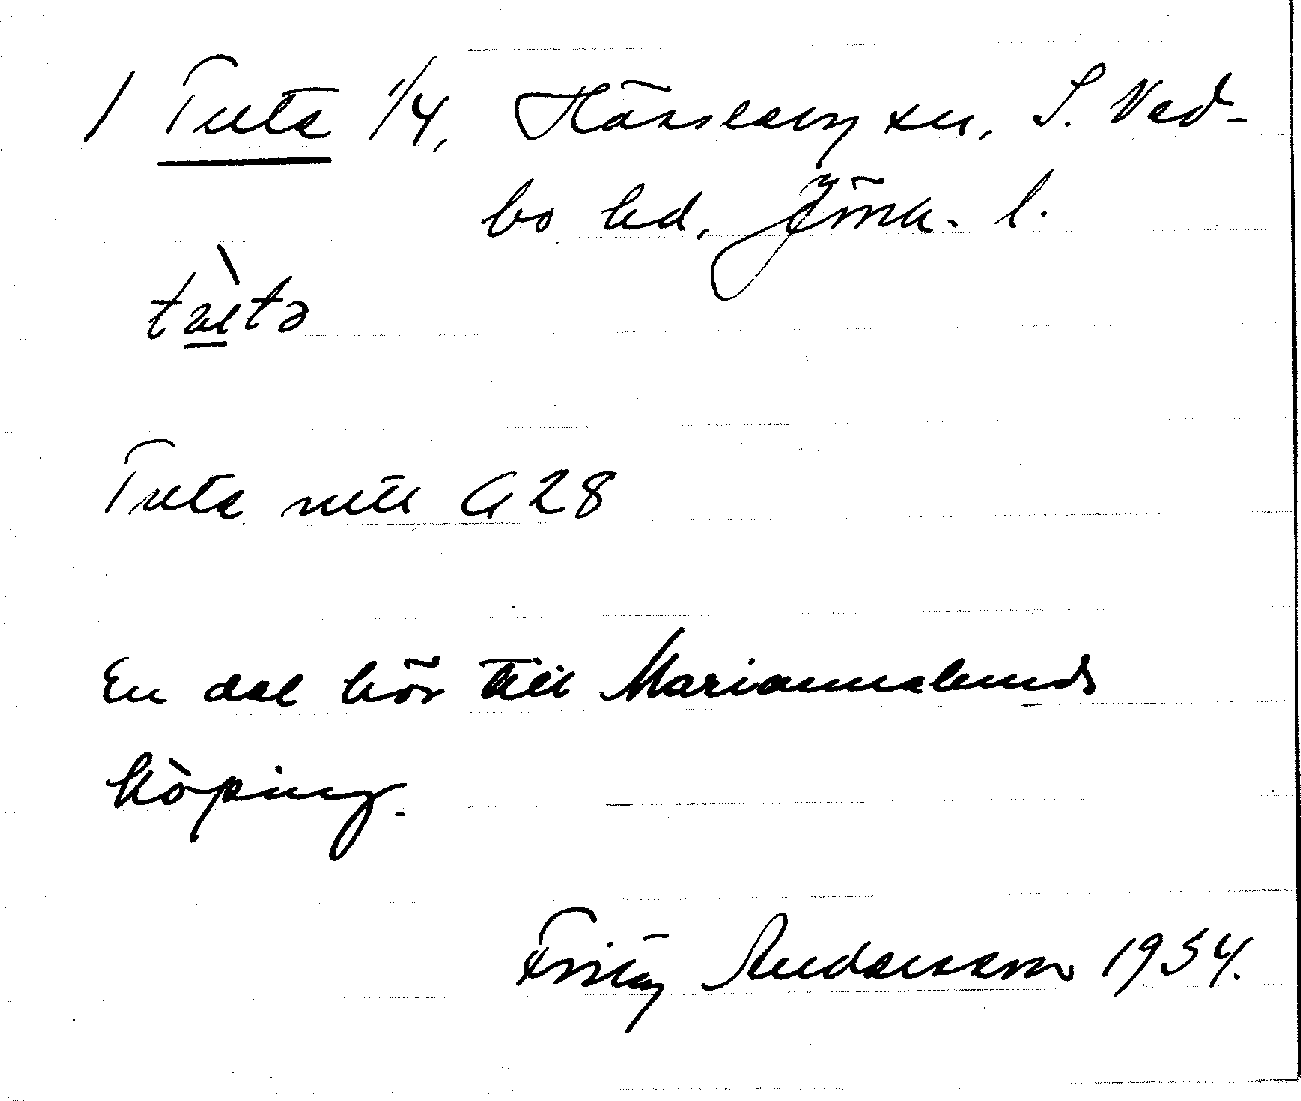 1 Tuta 1/4, Hässleby sn, S. Ved-
bo hd, Jönk. l.
tù̱tə
Tuta rutt G 28
En del hör till Mariannelunds
köping.
Fritz Andersson 1934.